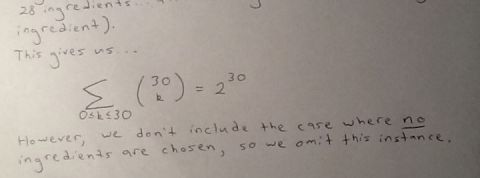 28 ingredients...
ingredient).
This gives us...
∑ (30 k) = 2^30
0≤k≤30
However, we don't include the case where no
ingredients are chosen, so we omit this instance.